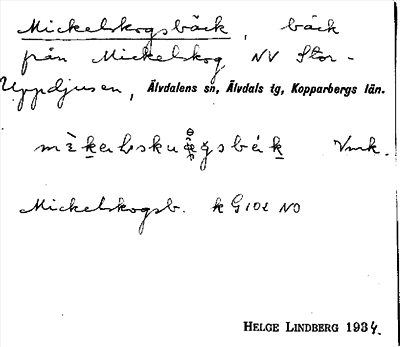 Mickelskogsbäck, bäck
från Mickelskog NV Stor-
Uppdjusen, Älvdalens sn, Älvdals tg, Kopparbergs län.
Vmk.
Mickelskogsb. k G 101 NO
HELGE LINDBERG 1934.